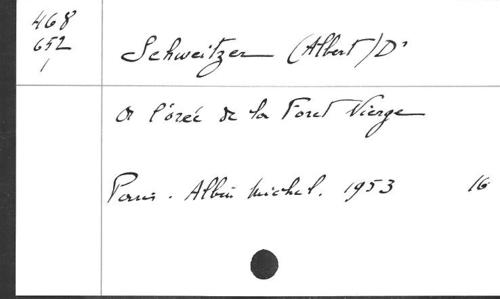 468
652
1
Schweitzer (Albert) Dr
A l'orée de la Foret Vierge
Paris. Albin Michel. 1953 16